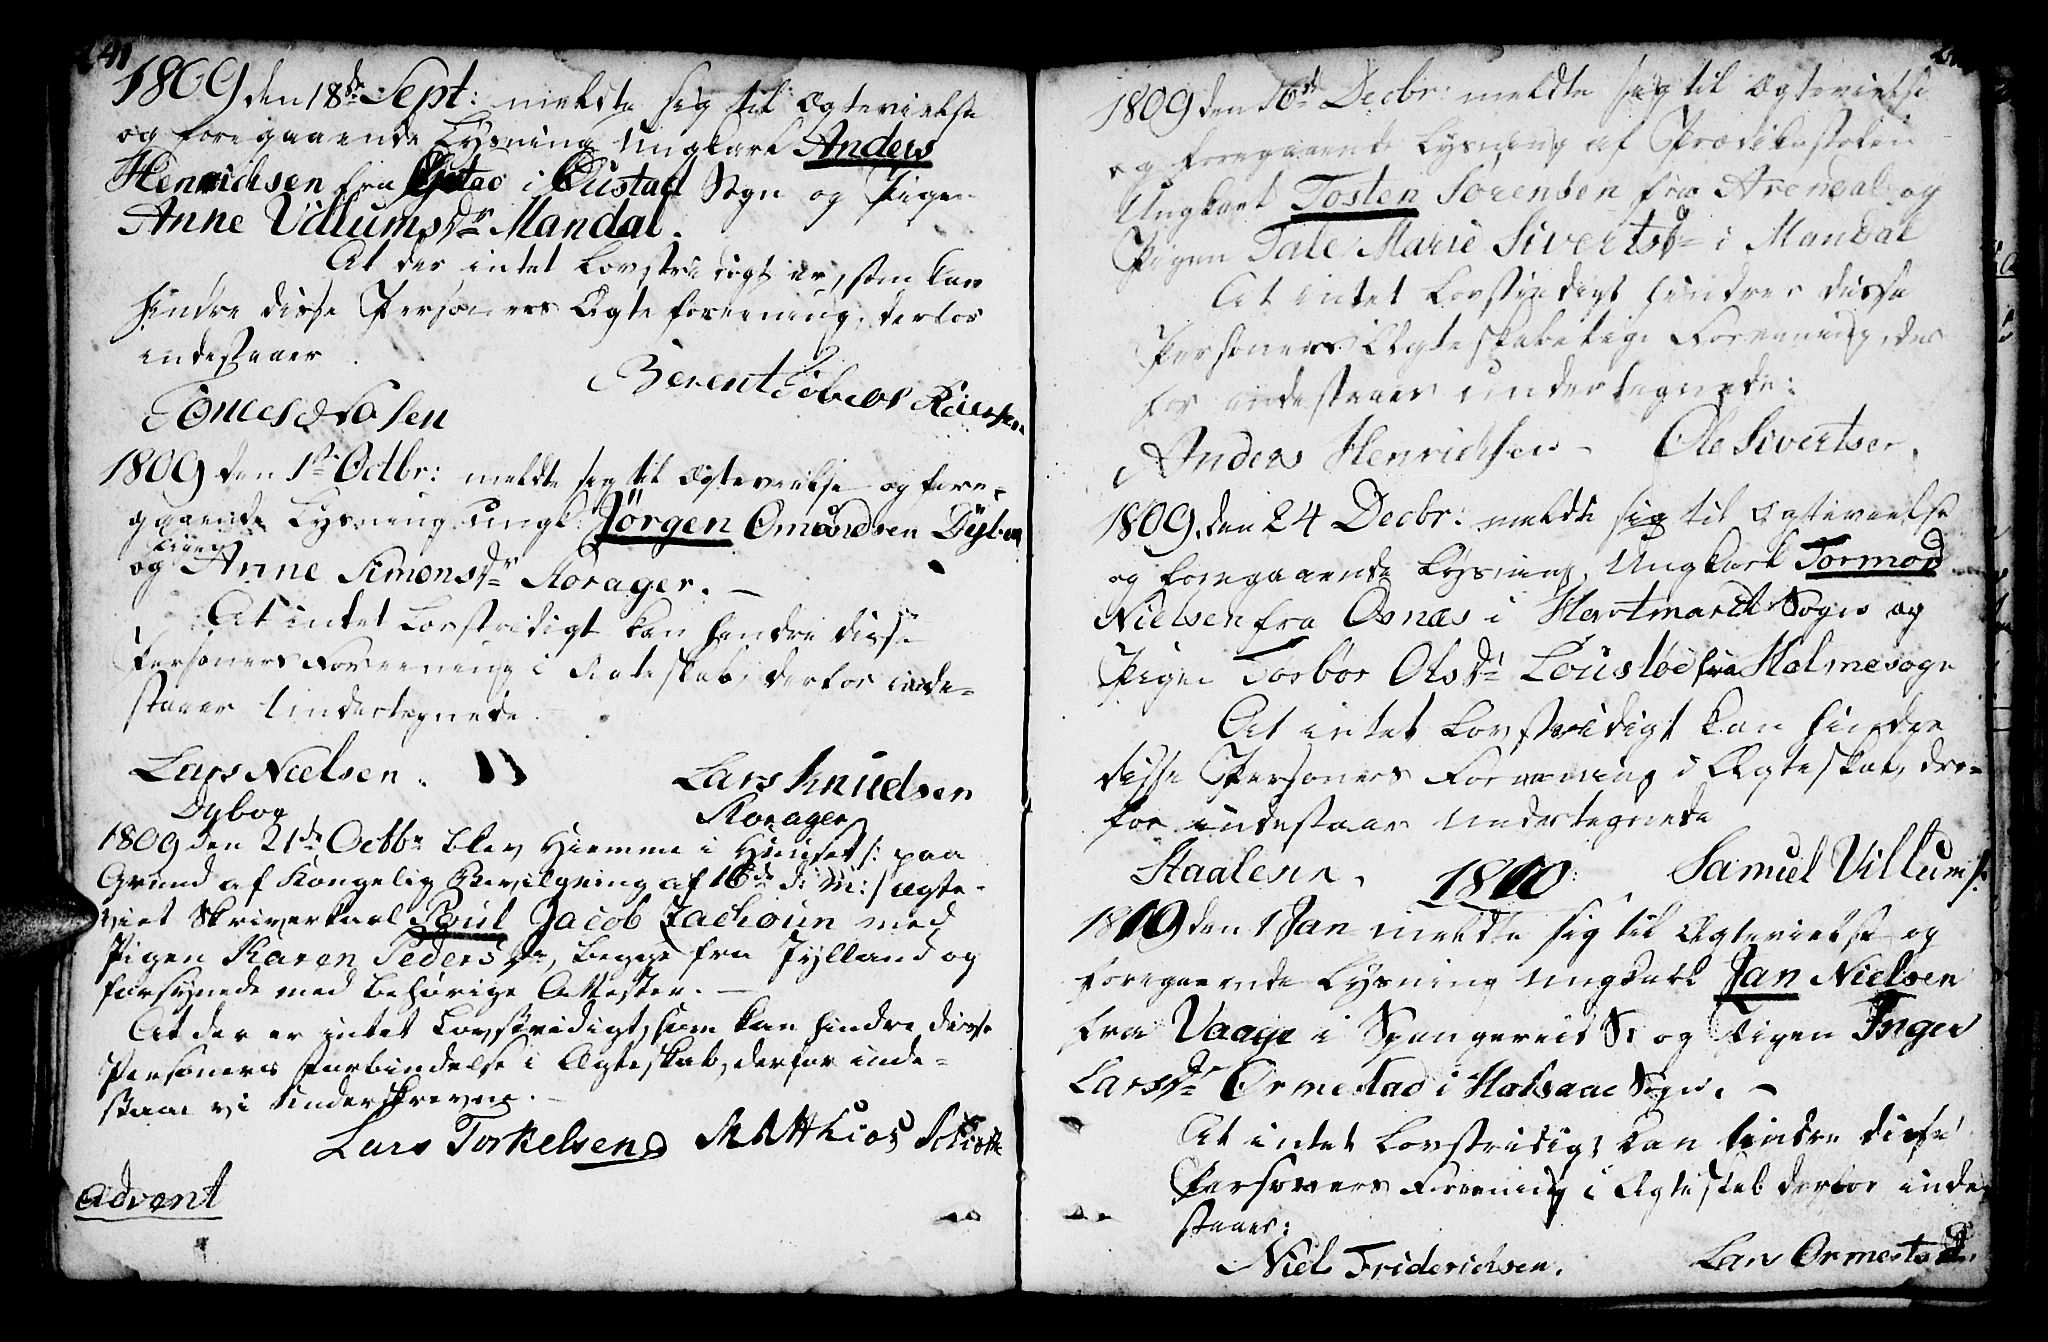 241
1809 den 18de Sept: meldte sig til Ægtevielse
og foregaaende Lysning Ungkarl Anders
Henrichsen fra i Sogn og Pigen
Anne Villumsdr Mandal.
At der intet Lovstridigt er, som kan
hindre disse Personers Ægteforeening, derfor
indestaaer
Berent Tobias
Tönnes Olsen
1809 den 1ste Octbr: meldte sig til Ægtevielse og fore-
gaaende Lysning Ungk: Jörgen Omundsen Dybo
og Pigen Anne Simonsdr Korager. -
At intet Lovstridigt kan hindre disse
Personers Foreening i Ægteskab, derfor inde-
staaer Undertegnede
Lars Nielsen. Lars Knudsen
Dyboe Korager
1809 den 21de Octbr blev Hiemme i Huuset /: paa
Grund af Kongelig Bevilgning af 16de d: M: :/ Ægte-
viet Skriverkarl Poul Jacob Zachoun med
Pigen Karen Pedersdr, begge fra Jylland og
forsynede med behørige Attester. -
At der er intet Lovstridigt, som kan hindre disse
Personers Forbindelse i Ægteskab, derfor inde-
staae vi Underskrevne. -
Lars Torkelsen Matthias
Advent
1809 den 16de Decbr: meldte sig til Ægtevielse
og foregaaende Lysning af Prædikestolen
Ungkarl Tosten Sörensen fra Arendal og
Pigen Tale Marie Sivertsdr i Mandal
At intet Lovstridigt hindrer disse
Personers Ægteskabelige Foreening, der
for indestaaer undertegnede:
Anders Henrichsen - Ole Sivertsen.
1809, den 24 Decbr: meldte sig til Ægtevielse
og foregaaende Lysning, Ungkarl Tormod
Nielsen fra Osnæs i Hartmarck Sogn og
Pigen Torbor Olsdr Löuslöe fra Holmesogn
At intet Lovstridigt kan hindre
disse Personers Foreening i Ægteskab, der-
for indestaaer Undertegnede
Staalesen. 1810. Samuel Villums:
1810 den 1 Jan meldte sig til Ægtevielse og
foregaaende Lysning Ungkarl Jan Nielsen
fra Vaage i Spangereid S: og Pigen Inger
Larsdr Ormestad i Halsaae Sogn. -
At intet Lovstridigt kan hindre disse
Personers Foreening i Ægteskab derfor inde
staaer:
Niels Friderichsen. Lars Ormestad